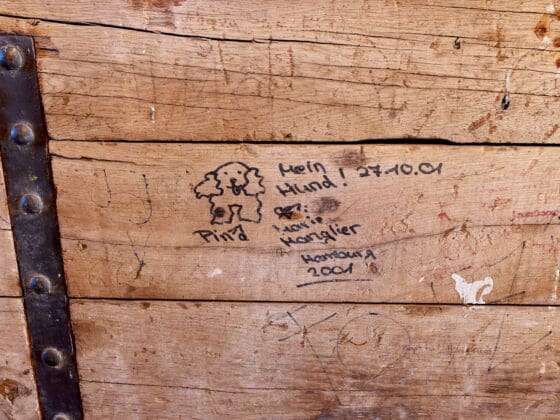 Mein
Hund! 27.10.01
Marie
Manglier
Hamburg
2001